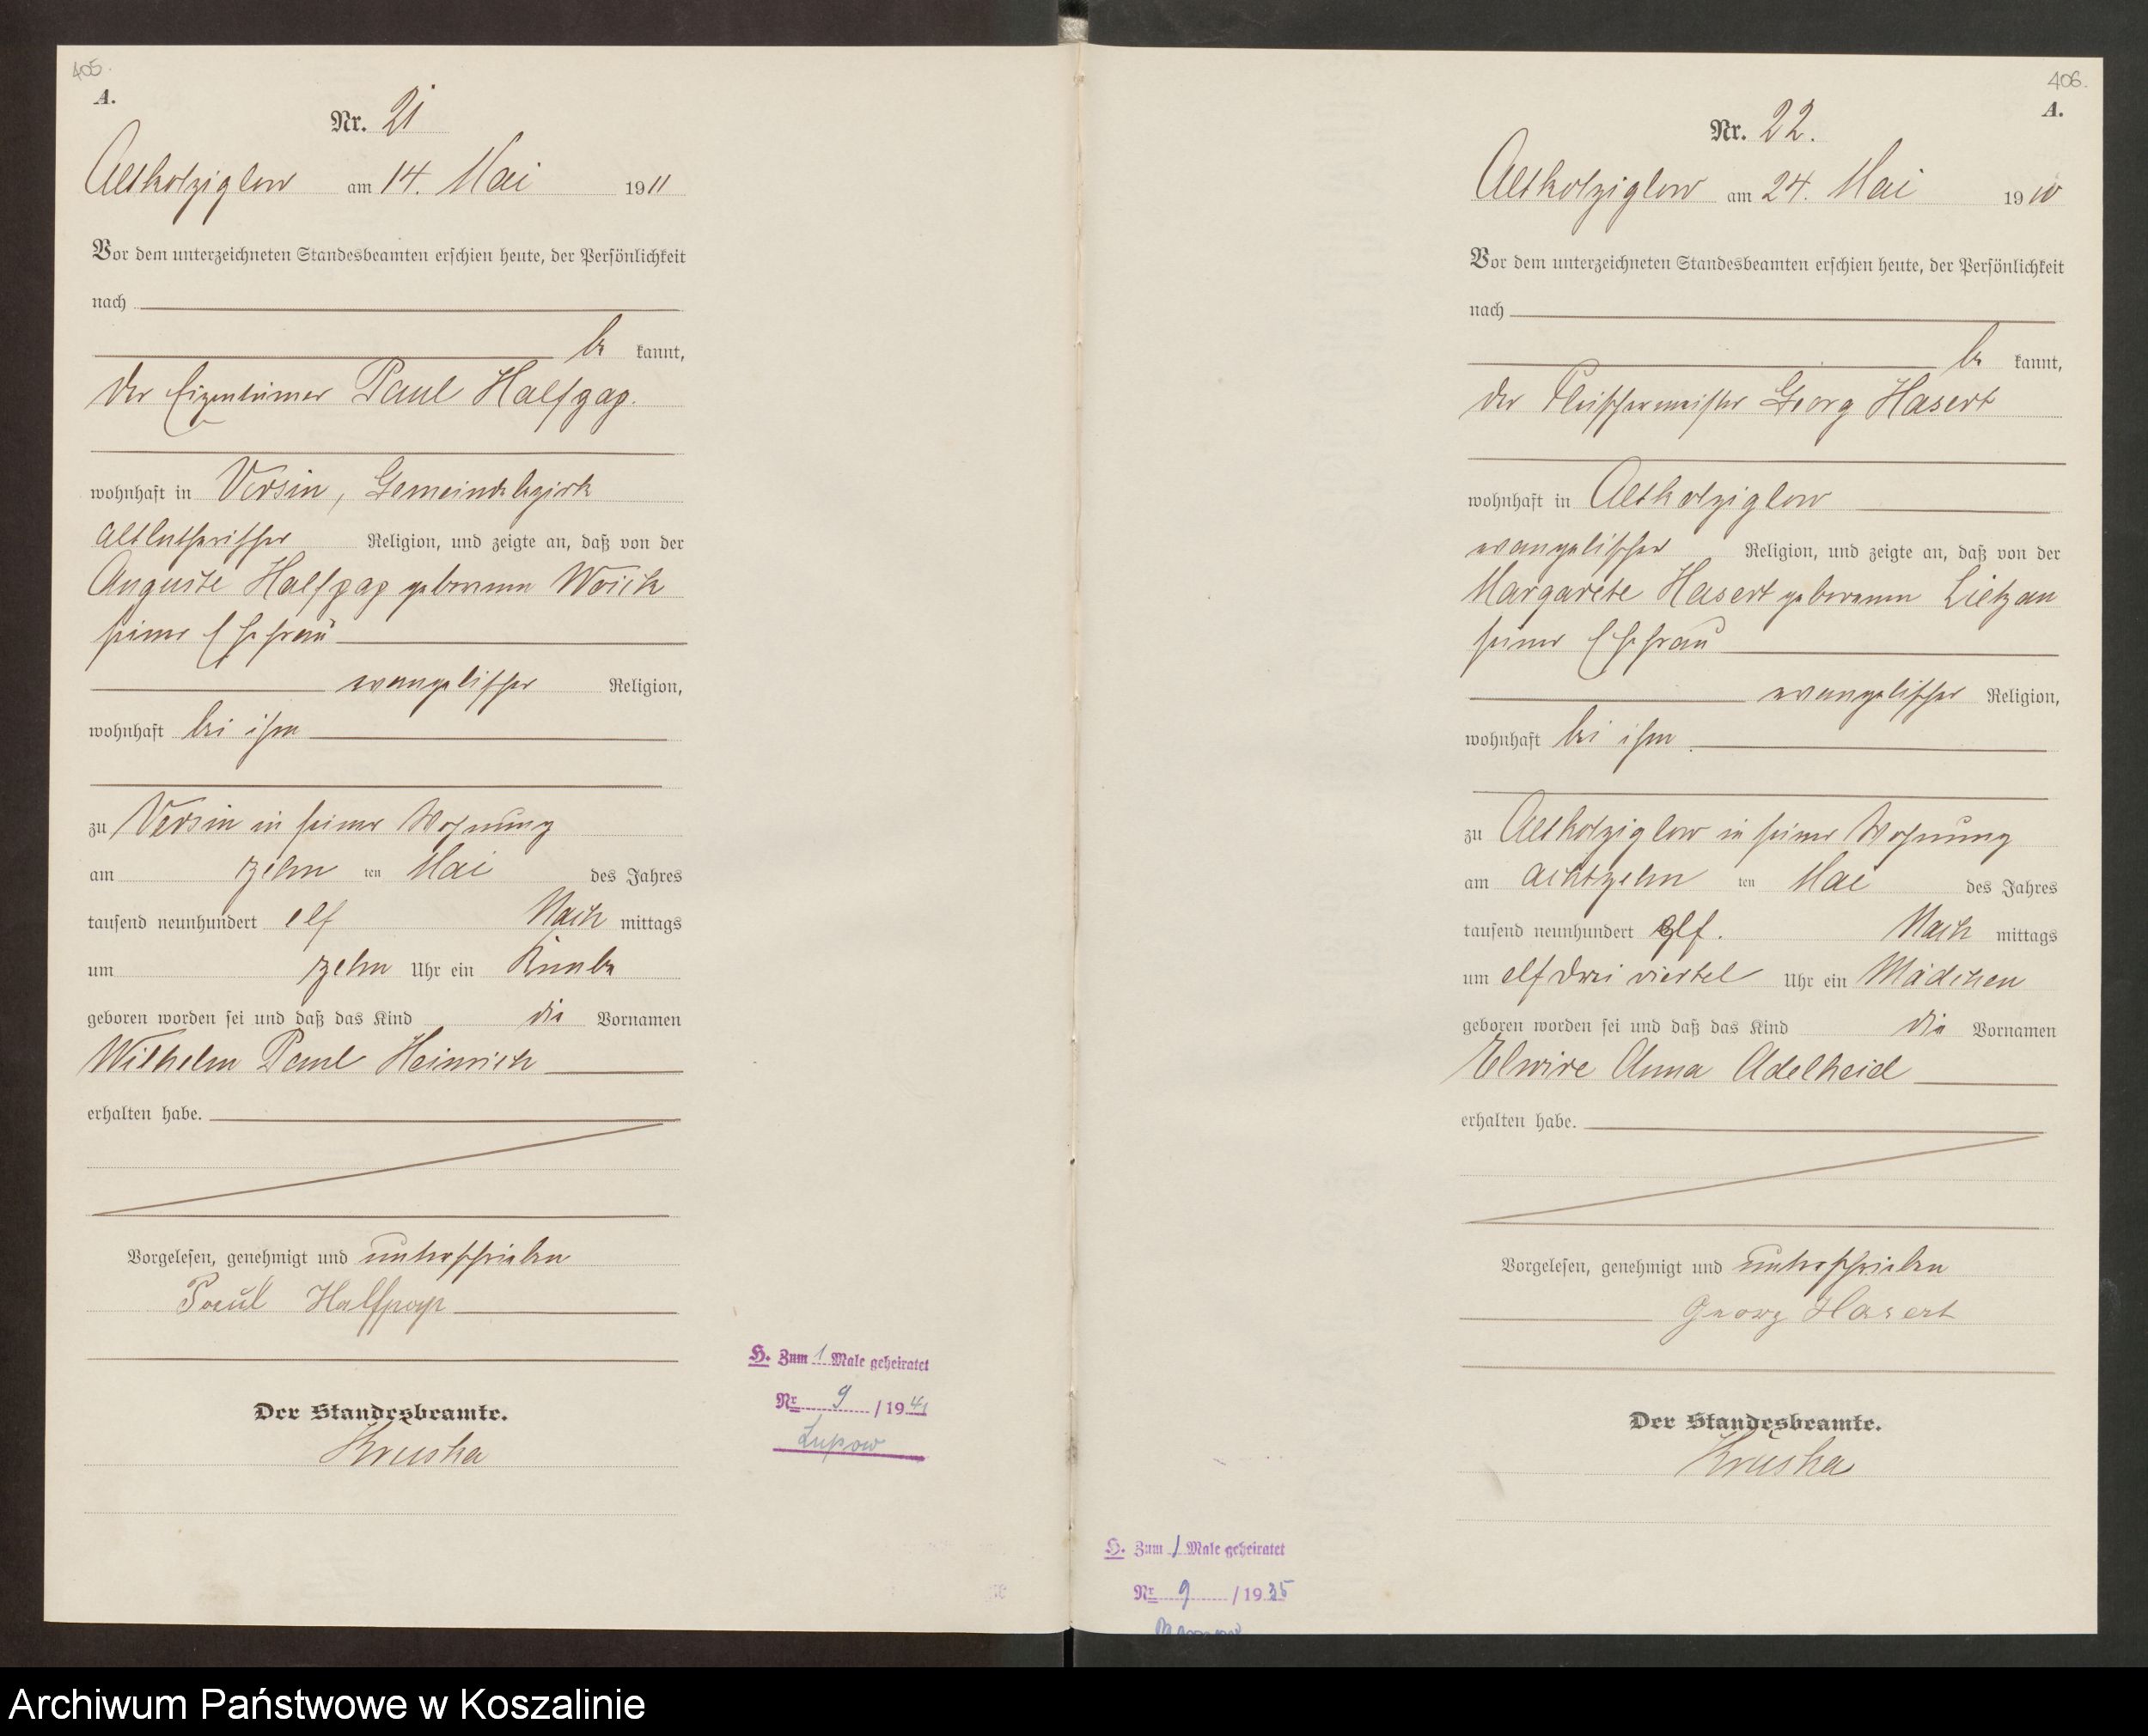 405.
A.
Nr. 21
Altkolziglow am 14. Mai 1911
Vor dem unterzeichneten Standesbeamten erschien heute, der Persönlichkeit
nach
be kannt,
der Eigentümer Paul Halfpap.
wohnhaft in Versin, Gemeindebezirk
altlutherischer Religion, und zeigte an, daß von der
Auguste Halfpap geborenen Woick
seiner Ehefrau
evangelischer Religion,
wohnhaft bei ihm
zu Versin in seiner Wohnung
am zehn ten Mai des Jahres
tausend neunhundert elf Nach mittags
um zehn Uhr ein Knabe
geboren worden sei und daß das Kind die Vornamen
Wilhelm Paul Heinrich
erhalten habe.
Vorgelesen, genehmigt und unterschrieben
Paul Halfpap
Der Standesbeamte.
Kruska
H. Zum 1 Male geheiratet
Nr 9 / 1941
Lupow
406.
A.
Nr. 22.
Altkolziglow am 24. Mai 19
Vor dem unterzeichneten Standesbeamten erschien heute, der Persönlichkeit
nach
be kannt,
der Fleischermeister Georg Hasert
wohnhaft in Altkolziglow
evangelischer Religion, und zeigte an, daß von der
Margarete Hasert geborenen Lietzau
seiner Ehefrau
evangelischer Religion,
wohnhaft bei ihm
zu Altkolziglow in seiner Wohnung
am achtzehn ten Mai des Jahres
tausend neunhundert elf. Nach mittags
um elf drei viertel Uhr ein Mädchen
geboren worden sei und daß das Kind die Vornamen
Elwire Anna Adelheid
erhalten habe.
Vorgelesen, genehmigt und unterschrieben
Georg Hasert
Der Standesbeamte.
Kruska
H. Zum 1 Male geheiratet
Nr 9 / 1935
Archiwum Państwowe w Koszalinie